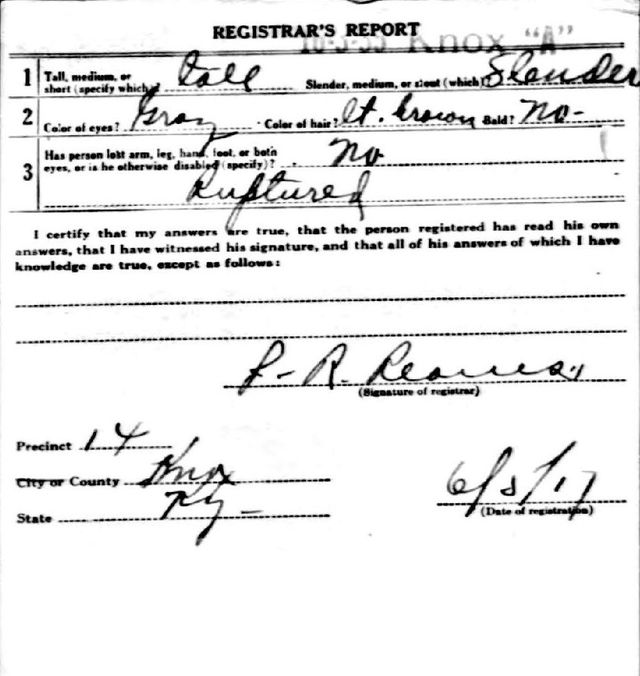 REGISTRAR'S REPORT
Knox "A"
1 Tall, medium, or short (specify which)? Tall Slender, medium, or stout (which)? Slender
2 Color of eyes? Gray Color of hair? lt. brown Bald? No-
3 Has person lost arm, leg, hand, foot, or both
eyes, or is he otherwise disabled (specify)? No
Ruptured
I certify that my answers are true, that the person registered has read his own
answers, that I have witnessed his signature, and that all of his answers of which I have
knowledge are true, except as follows:
R.
(Signature of registrar)
Precinct 14
City or County Knox
State Ky-
6/5/17
(Date of registration)